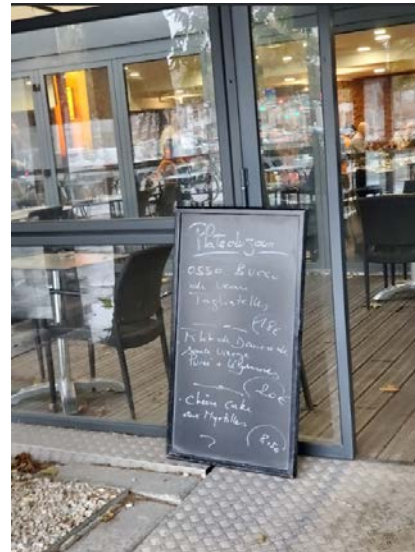 Plats du jour
Osso Bucco
de veau
Tagliatelles
18€
Sauce vierge
Purée + Légumes
20€
- Cheese cake
aux Myrtilles
8,50